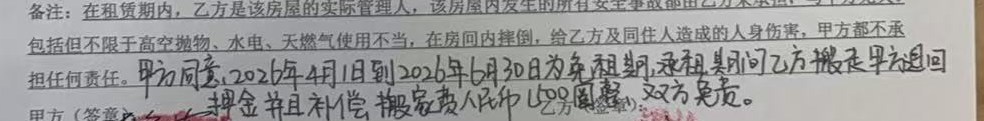 备注：在租赁期内，乙方是该房屋的实际管理人，该房屋内发生的所有安全事故都由乙方来承担，与甲方无关。
包括但不限于高空抛物、水电、天燃气使用不当，在房间内摔倒，给乙方及同住人造成的人身伤害，甲方都不承
担任何责任。甲方同意，2026年4月1日到2026年6月30日为免租期，承租期间乙方搬走甲方退回
押金并且补偿搬家费人民币1500圆整，双方免责。
甲方（签章）
乙方（签章）：